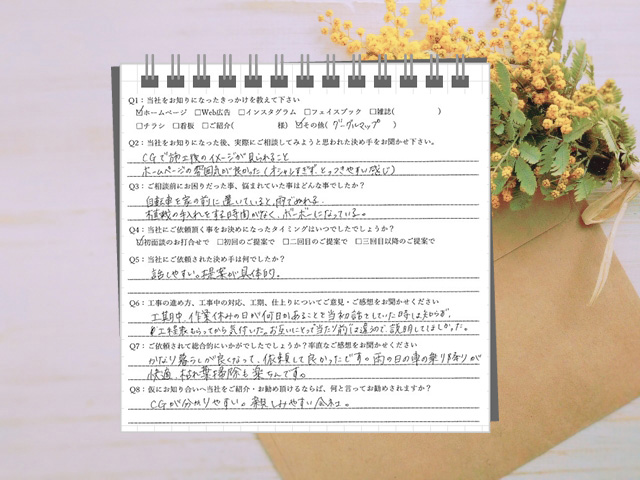 Q1：当社をお知りになったきっかけを教えて下さい
☑ホームページ □Web広告 □インスタグラム □フェイスブック □雑誌( )
□チラシ □看板 □ご紹介( 様) ☑その他( グーグルマップ )
Q2：当社をお知りになった後、実際にご相談してみようと思われた決め手をお聞かせ下さい。
CGで施工後のイメージが見られること
ホームページの雰囲気が良かった(オシャレすぎず、とっつきやすい感じ)
Q3：ご相談前にお困りだった事、悩まれていた事はどんな事でしたか？
自転車を家の前に置いていると、雨でぬれる。
植栽の手入れをする時間がなく、ボーボーになっている。
Q4：当社にご依頼頂く事をお決めになったタイミングはいつでしたでしょうか？
☑初面談のお打合せで □初回のご提案で □二回目のご提案で □三回目以降のご提案で
Q5：当社にご依頼された決め手は何でしたか？
話しやすい。提案が具体的。
Q6：工事の進め方、工事中の対応、工期、仕上りについてご意見・ご感想をお聞かせください
工期中、作業休みの日が何日かあることを当初話をしていた時は知らず、
工程表もらってから気付いた。お互いにとって当たり前は違うので、説明してほしかった。
Q7：ご依頼されて総合的にいかがでしたでしょうか？率直なご感想をお聞かせください
かなり暮らしが良くなって、依頼して良かったです。雨の日の車の乗り降りが
快適、枯れ葉掃除も楽ちんです。
Q8：仮にお知り合いへ当社をご紹介・お勧め頂けるならば、何と言ってお勧めされますか？
CGが分かりやすい。親しみやすい会社。